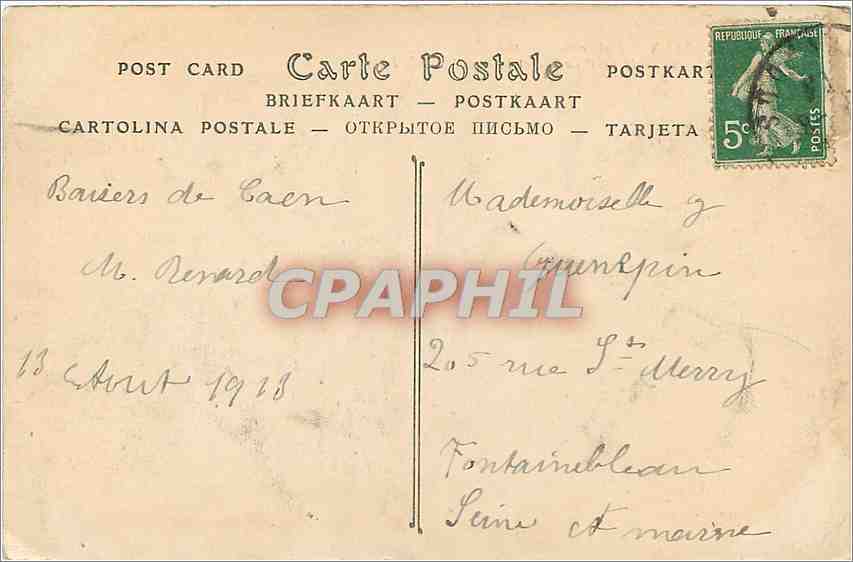 POST CARD Carte Postale POSTKART
BRIEFKAART — POSTKAART
CARTOLINA POSTALE — ОТКРЫТОЕ ПИСЬМО — TARJETA
REPUBLIQUE FRANÇAISE
5c
POSTES
Baisers de Caen
M. Renard
13 Aout 1913
Mademoiselle g
Guenepin
205 rue St Merry
Fontainebleau
Seine et marne
CPAPHIL